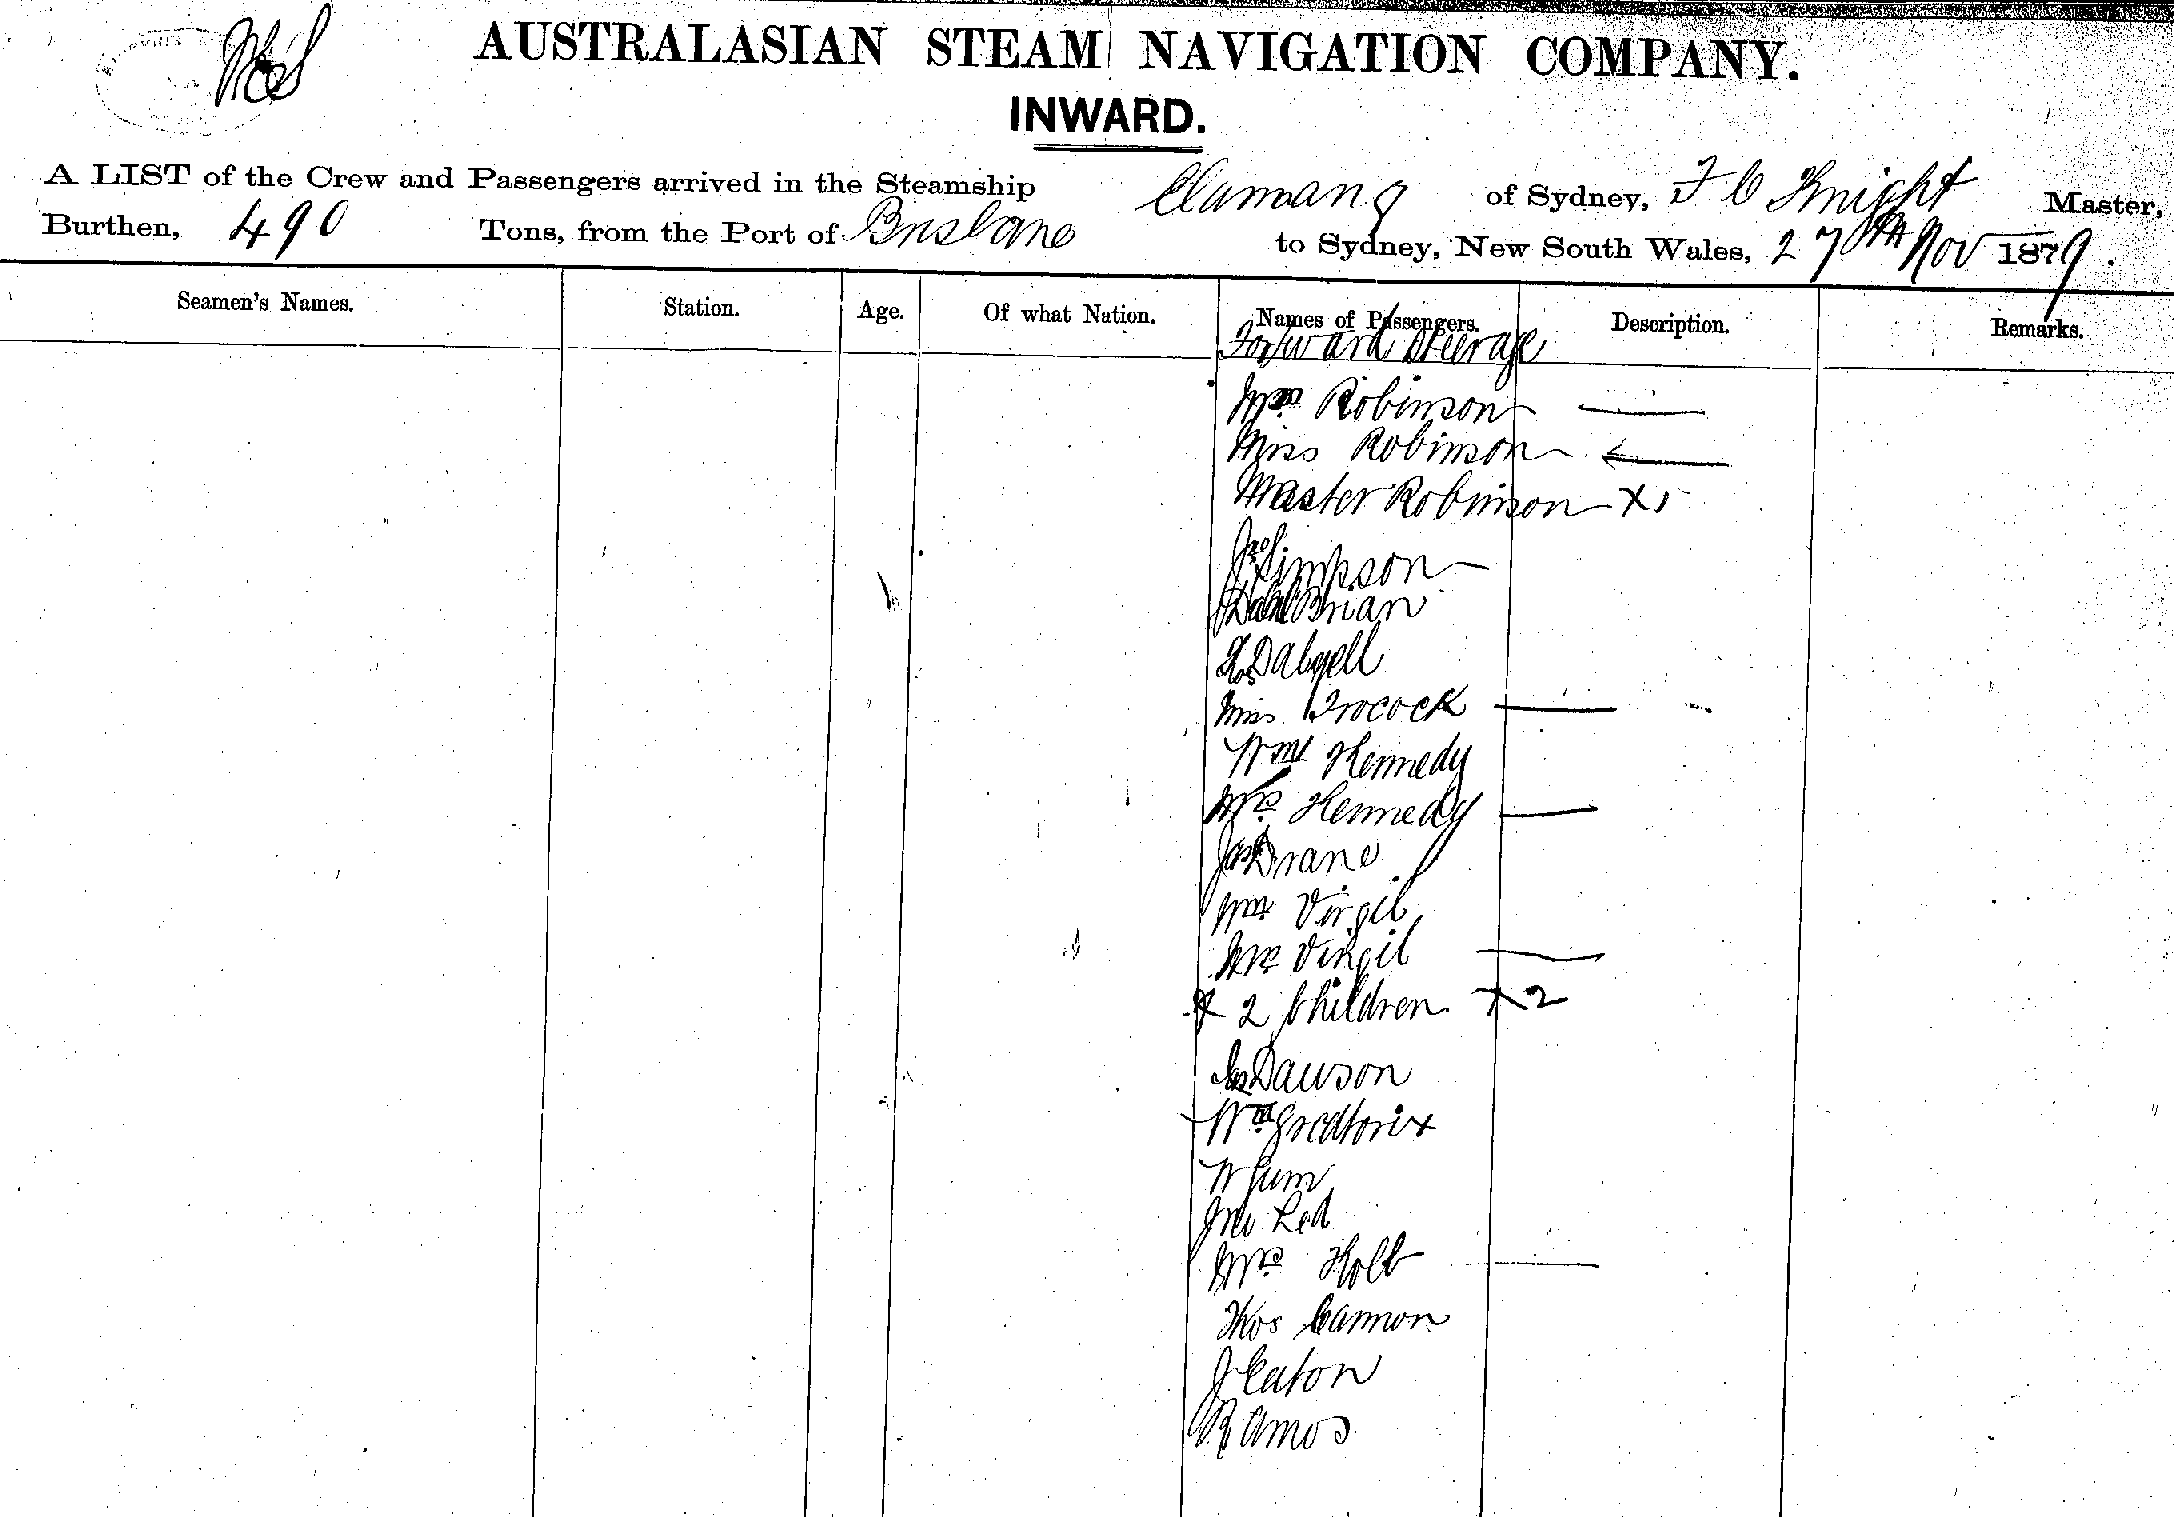 AUSTRALASIAN STEAM NAVIGATION COMPANY.
INWARD.
A LIST of the Crew and Passengers arrived in the Steamship Clamang of Sydney, F C Knight Master,
Burthen, 490 Tons, from the Port of Brisbane to Sydney, New South Wales, 27th Nov 1879.
Seamen's Names. Station. Age. Of what Nation. Names of Passengers. Description. Remarks.
Forward Steerage
Mrs Robinson —
Miss Robinson —
Master Robinson x1
Jno Simpson
Brian
Dalyell
Miss —
Wm Kennedy
Mrs Kennedy —
Jas Drane
Wm Virgil
Mrs Virgil —
& 2 Children x2
Jas Dawson
Wm
W Gum
Jno Red
Mrs Holt —
Thos Cannon
J Eaton
R Amos